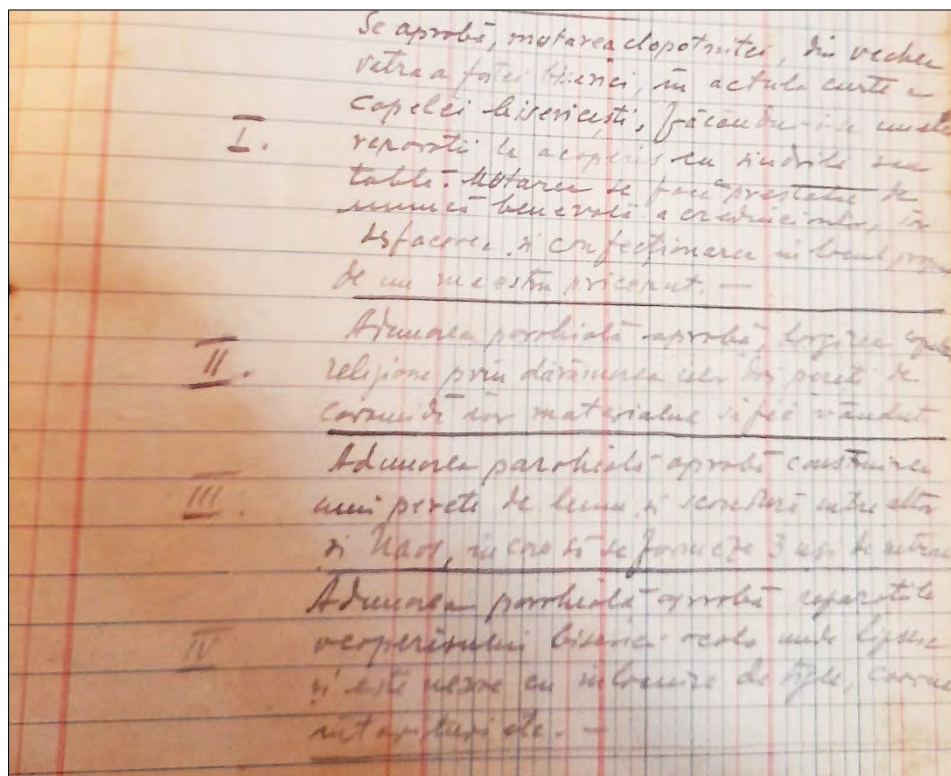 Se aprobă, mutarea clopotnitei, din vechea
vetra a fostei biserici, in actula curte a
I. Capelei bisericești, făcându-i-se unele
reparatii la acoperis cu sindrile sau
tablă. Mutarea se face prestatie de
muncă benevolă a credinciosilor, in
desfacerea si confecționarea in locul
de un maestru priceput. —
Adunarea parohială aprobă, lărgirea
II. religiune prin dărâmarea celor doi pereti de
cărămidă iar materialul să fie vândut
Adunarea parohială aprobă construirea
III. unui perete de lemn si scandură intre altar
si Naos, in care să se formeze 3 usi de intrare
Adunarea parohială aprobă reparatiile
IV acoperisului biserici acolo unde lipsesc
si este nevoe cu inlocuire de tigle,
intarituri etc. —